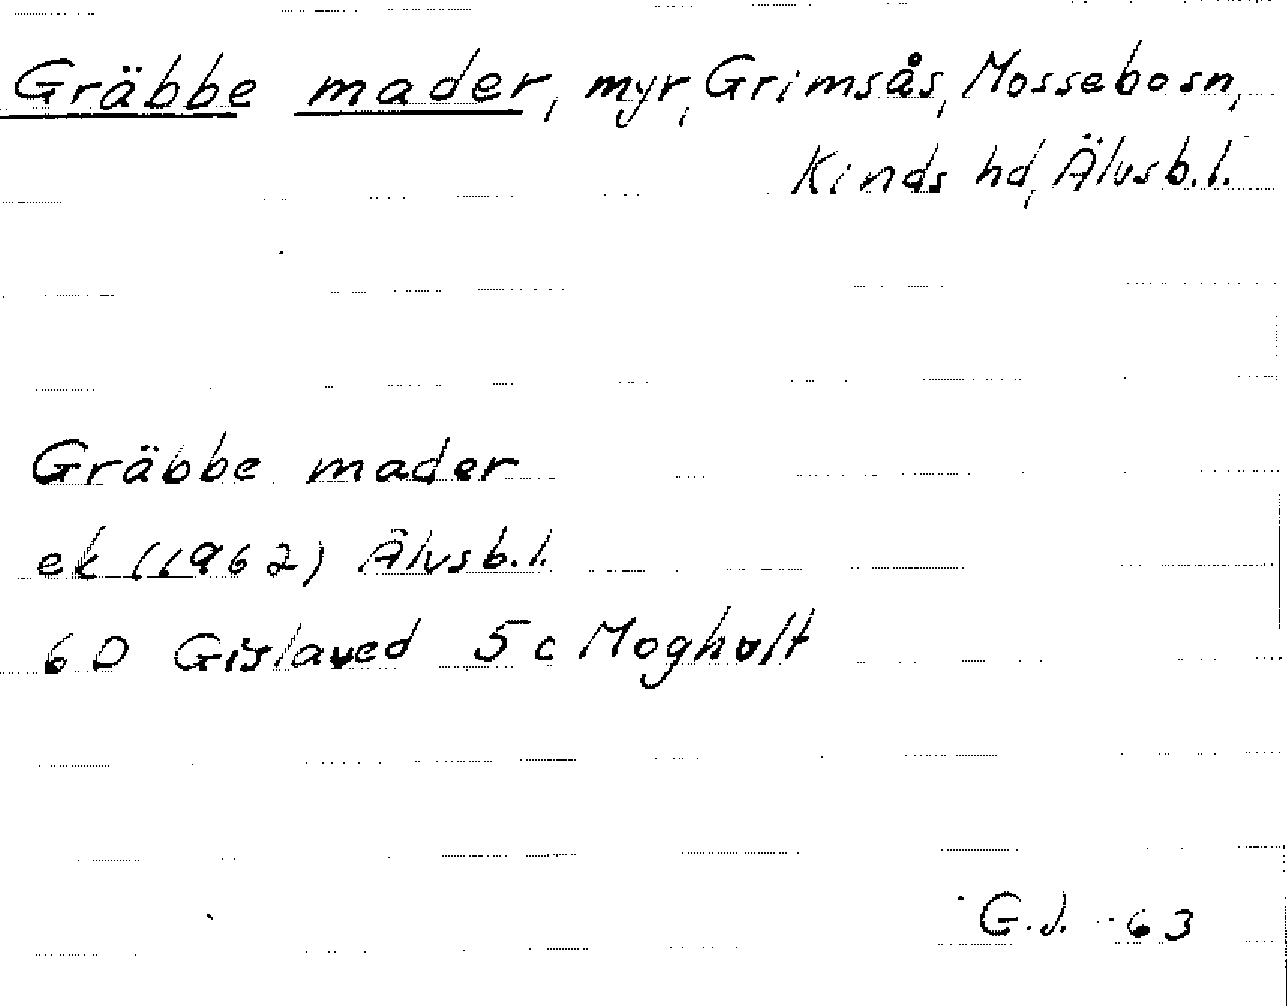 Gräbbe mader, myr, Grimsås, Mossebo sn,
Kinds hd, Älvsb.l.
Gräbbe mader
ek (1962) Älvsb.l.
6D Gislaved 5c Moghult
G.J. -63